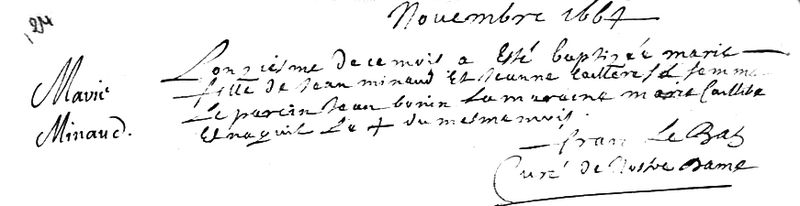 Novembre 1664
Marie
Minaud.
L'onziesme de ce mois a Esté baptizée marie
fille de Jean minaud Et Jeanne Caillere sa femme
Le parein Jean bonin La maraine marie
Et naquit Le 4 du mesme mois.
fran Le Bas
Curé de Nostre Dame